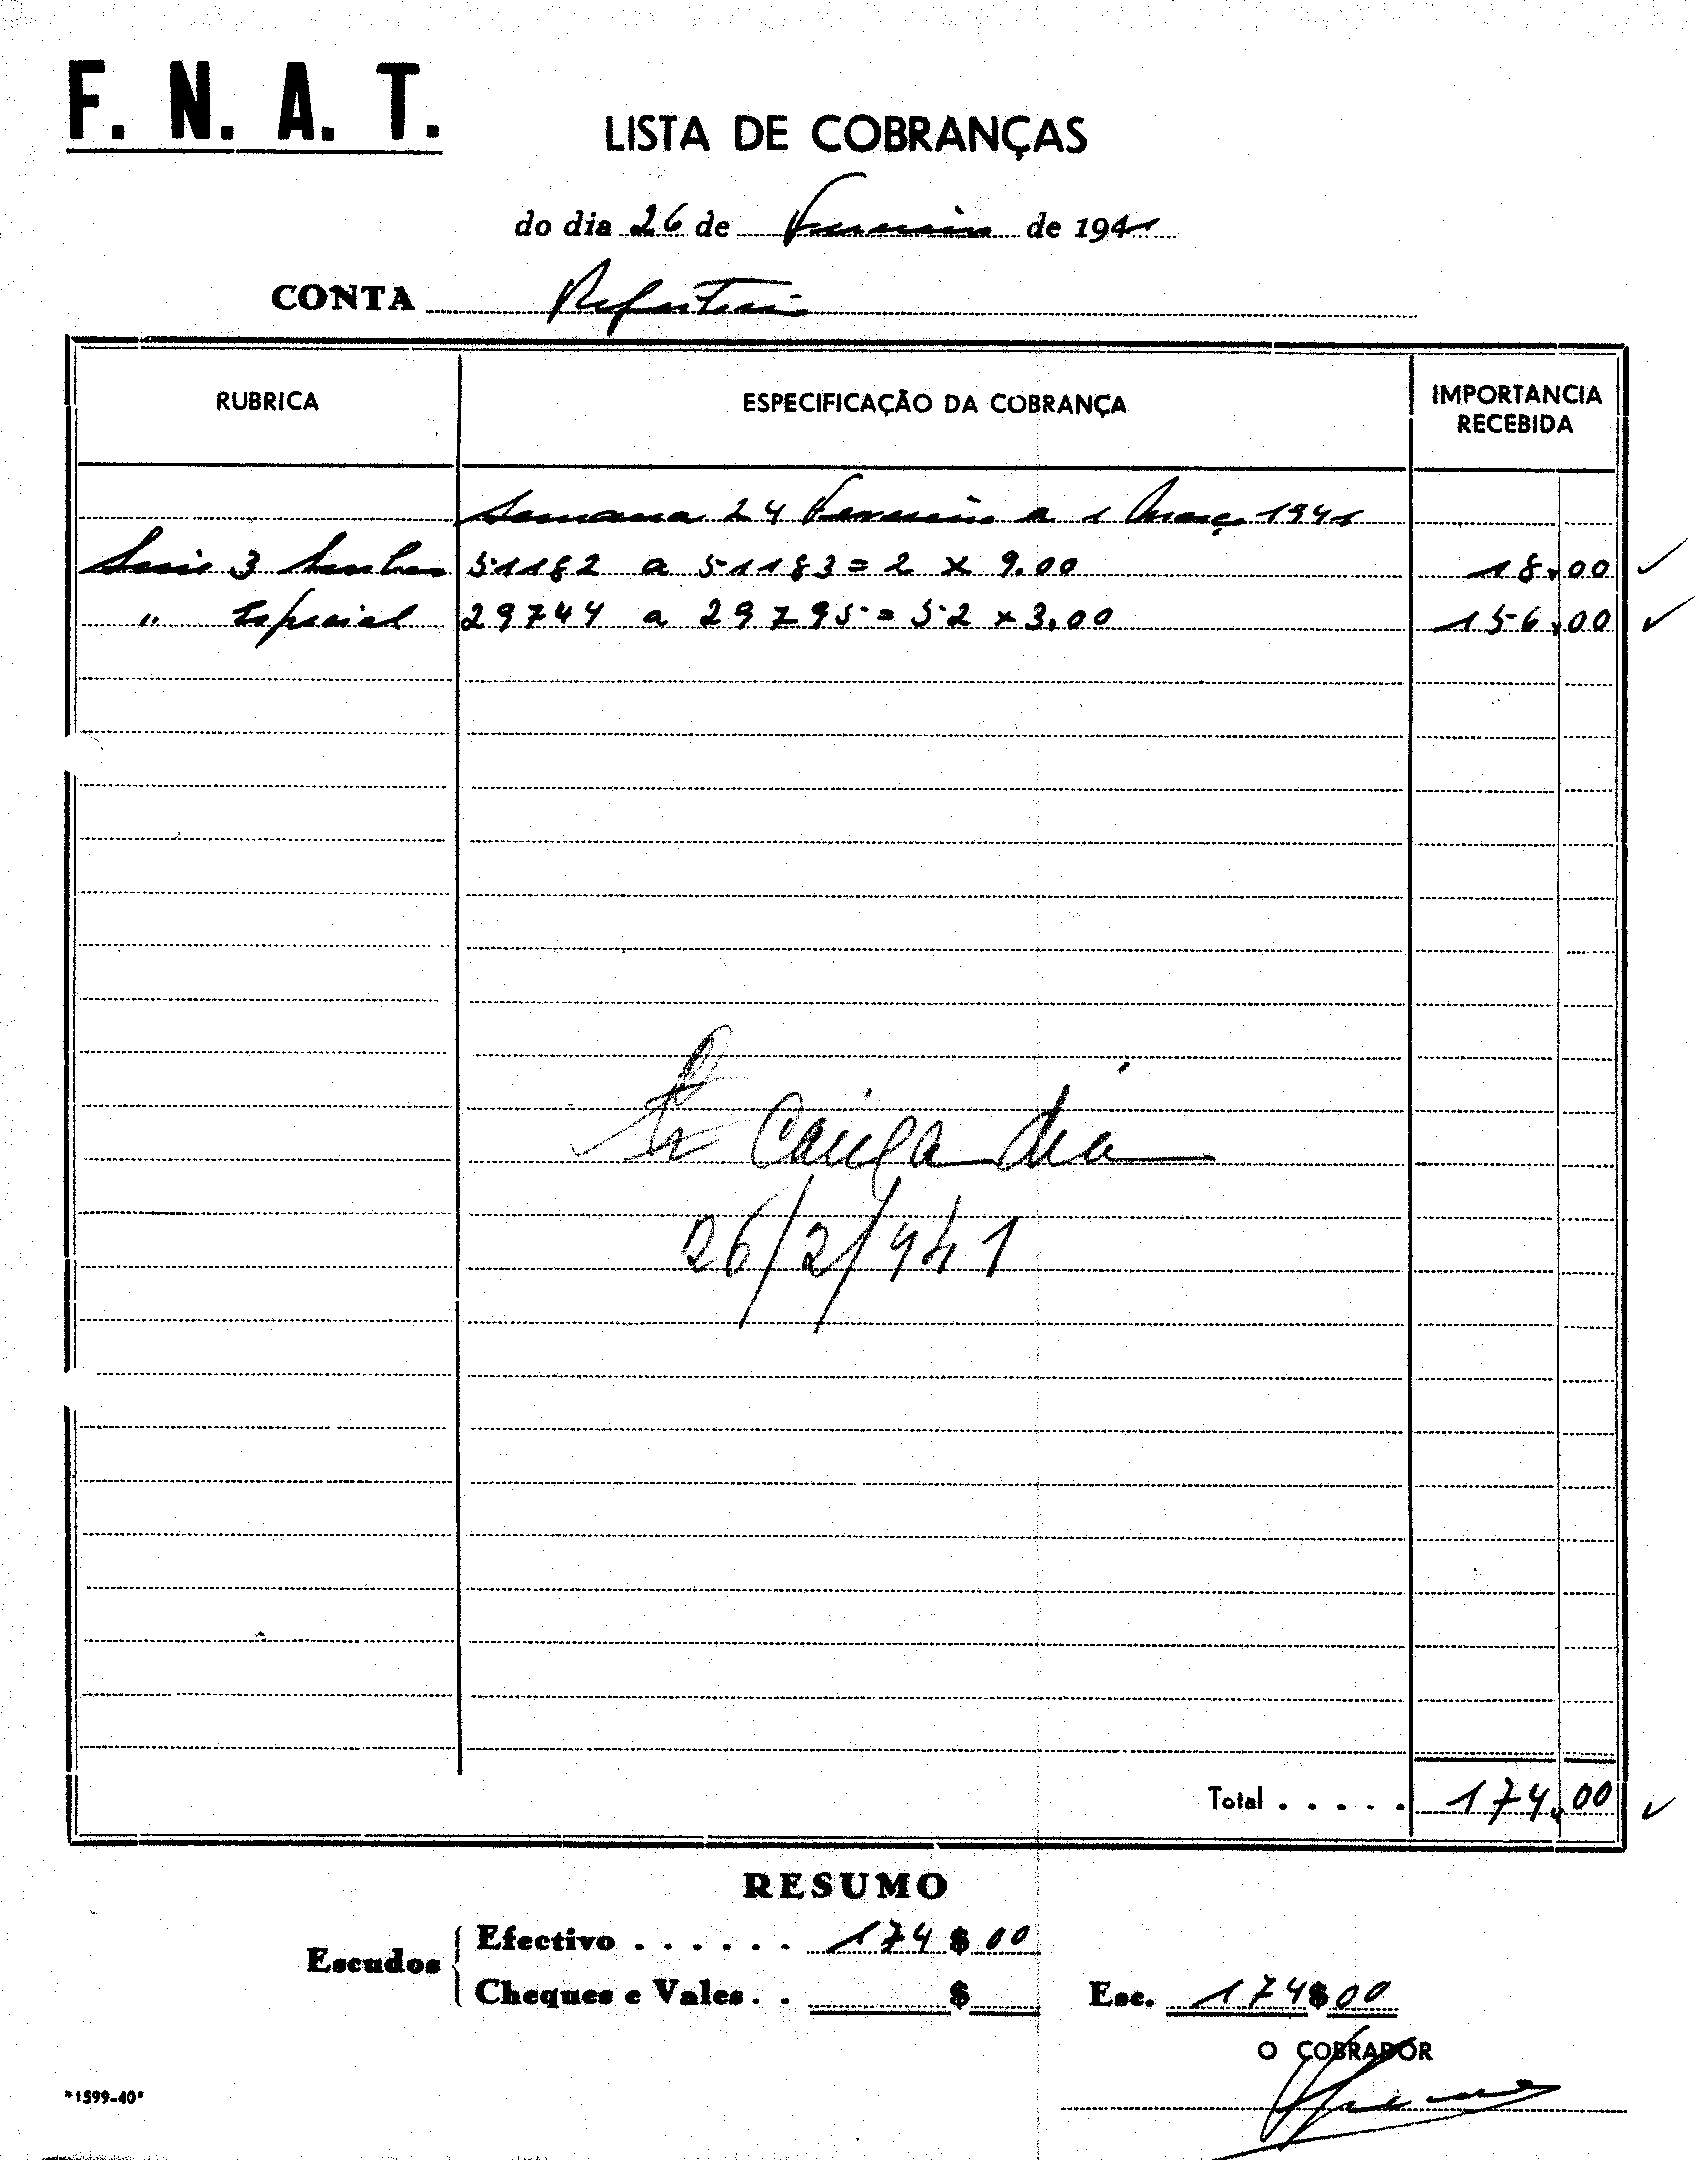 F. N. A. T.
LISTA DE COBRANÇAS
do dia 26 de Fevereiro de 1941
CONTA Refeitório
RUBRICA ESPECIFICAÇÃO DA COBRANÇA IMPORTANCIA RECEBIDA
Semana 24 Fevereiro a 1 Março 1941
Serie 3 Senhas 51182 a 51183 = 2 x 9.00 18.00
" Especial 29744 a 29795 = 52 x 3.00 156.00
Caixa dia
26/2/941
Total . . . . . 174.00
RESUMO
Escudos Efectivo . . . . . . 174$00
Cheques e Vales . . $ Esc. 174$00
O COBRADOR
"1599-40"